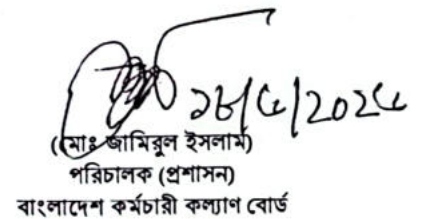 ১৮/৫/২০২৫
(মোঃ জামিরুল ইসলাম)
পরিচালক (প্রশাসন)
বাংলাদেশ কর্মচারী কল্যাণ বোর্ড